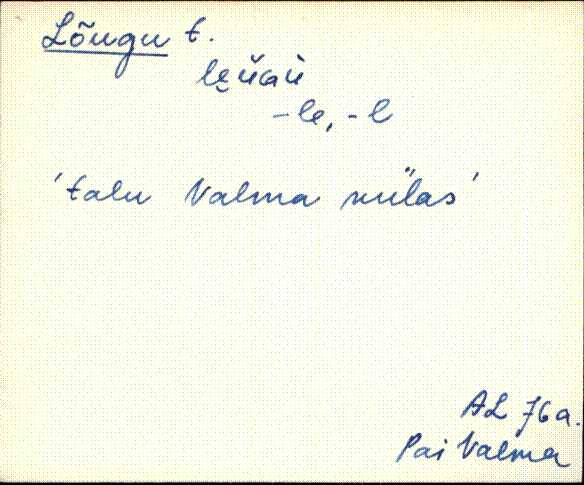 Lõugu t.
-le, -l
'talu Valma külas'
AL 76a.
Pai Valma